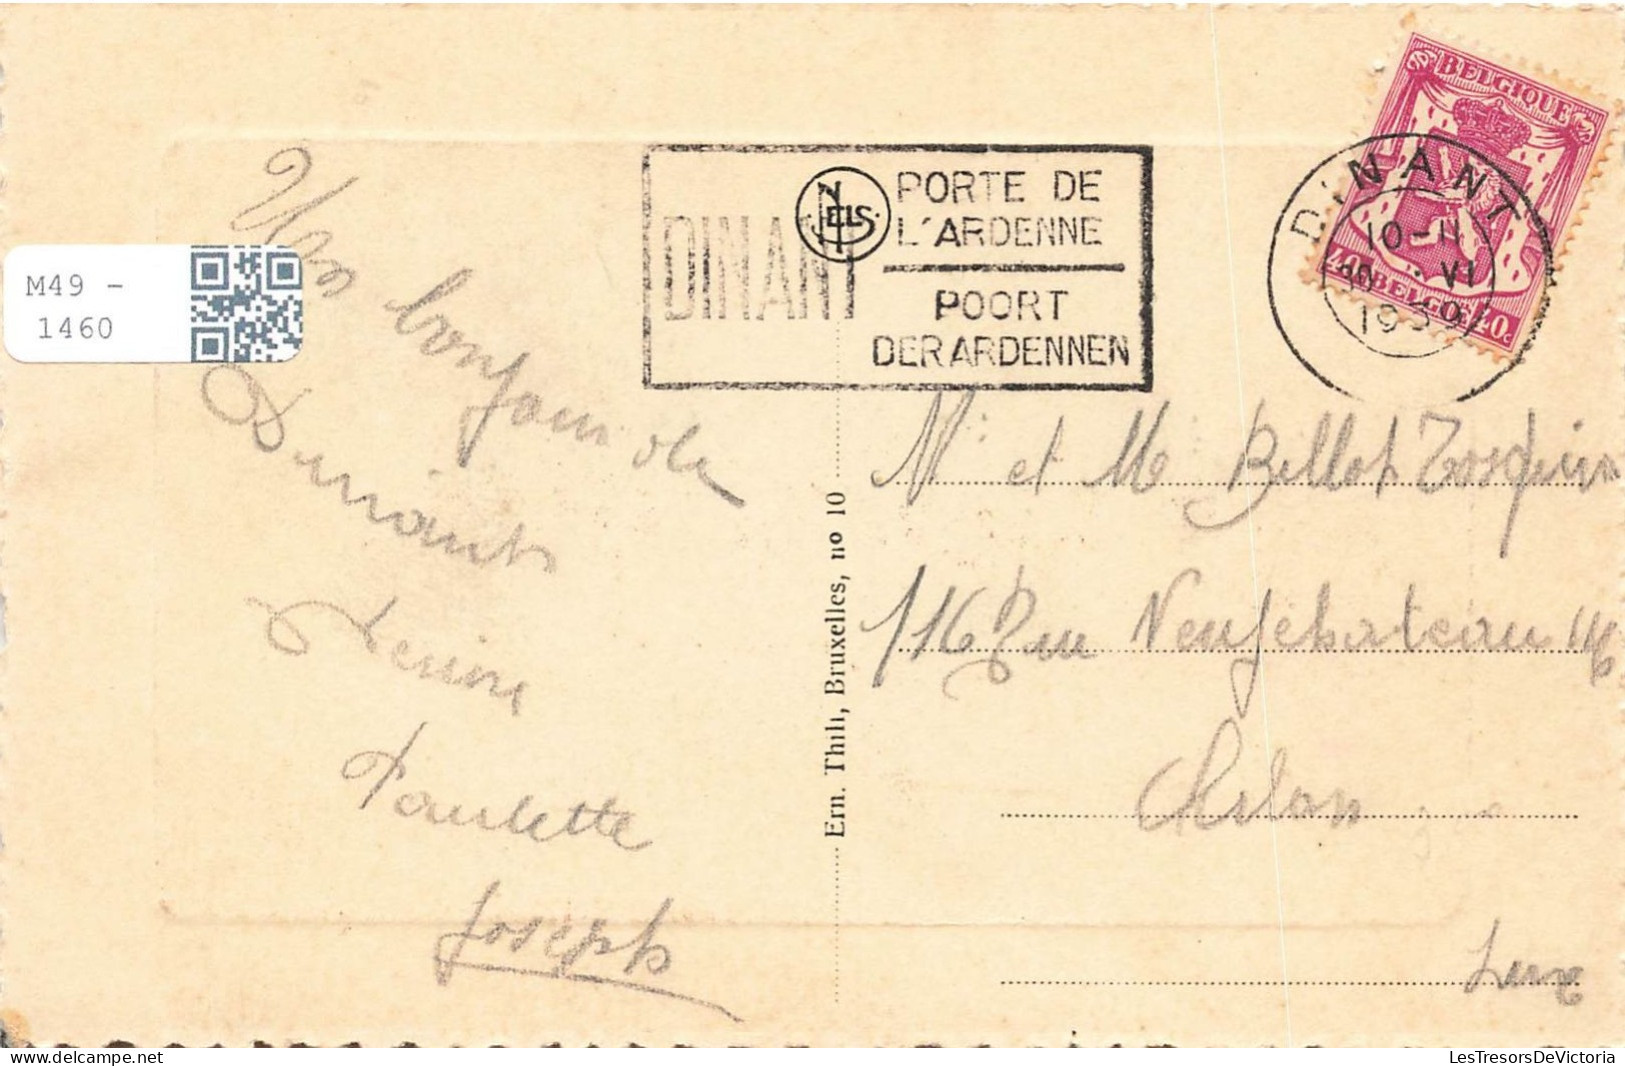 M49 -
1460
DINANT
NELS
PORTE DE
L'ARDENNE
POORT
DER ARDENNEN
DINANT
10-11
30 VI
1939
BELGIQUE
40c BELGIE 40c
Un bonjour de
Dinant
Paulette
Joseph
Ern. Thill, Bruxelles, no 10
Mr et Me Billot Tosquin
116 Rue Neufchateau 116
Arlon
Lux
LesTresorsDeVictoria